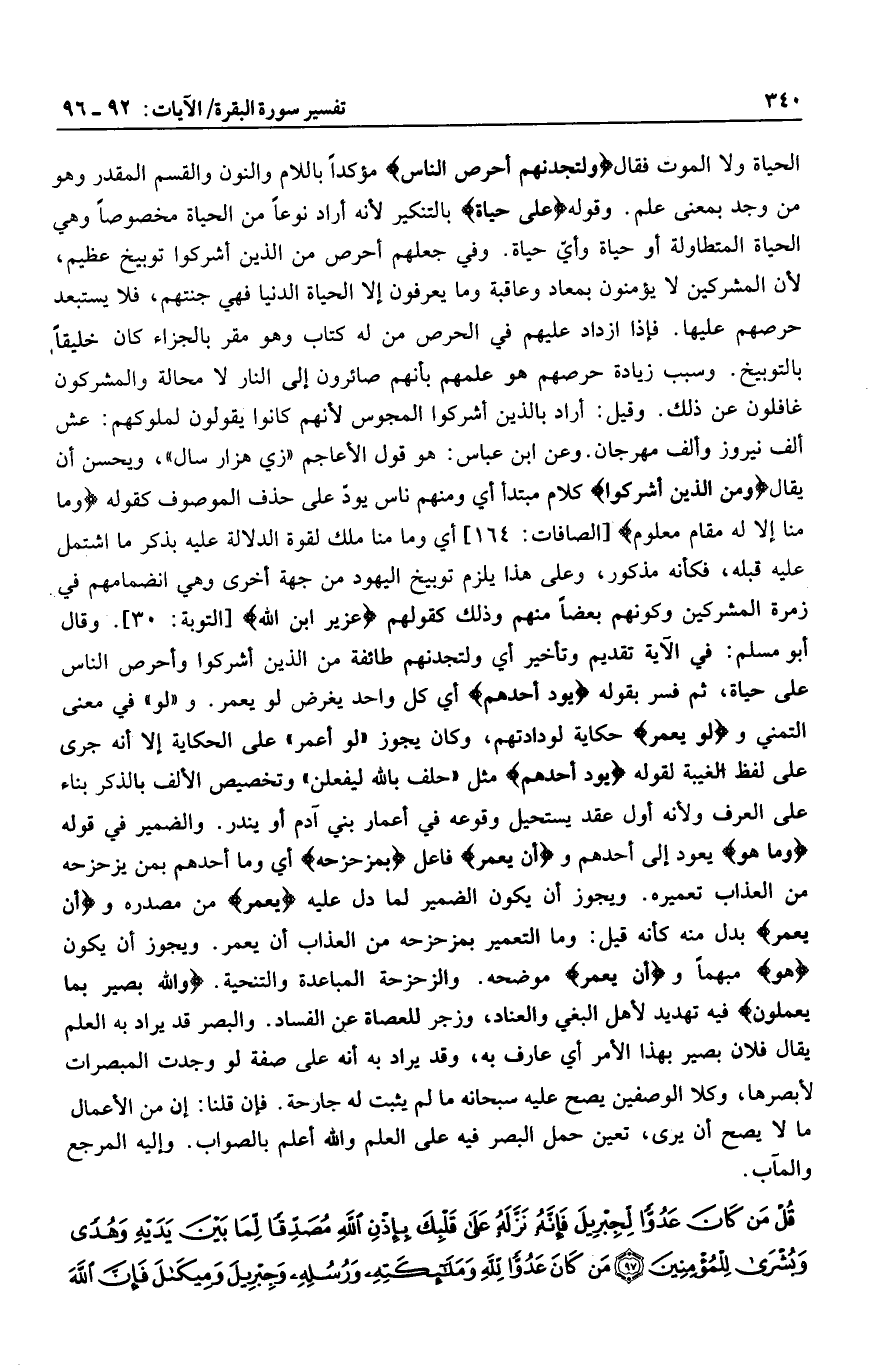 ٣٤٠
تفسير سورة البقرة/ الآيات: ٩٢ ـ ٩٦
الحياة ولا الموت فقال﴿ولتجدنهم أحرص الناس﴾ مؤكداً باللام والنون والقسم المقدر وهو
من وجد بمعنى علم. وقوله﴿على حياة﴾ بالتنكير لأنه أراد نوعاً من الحياة مخصوصاً وهي
الحياة المتطاولة أو حياة وأيّ حياة. وفي جعلهم أحرص من الذين أشركوا توبيخ عظيم،
لأن المشركين لا يؤمنون بمعاد وعاقبة وما يعرفون إلا الحياة الدنيا فهي جنتهم، فلا يستبعد
حرصهم عليها. فإذا ازداد عليهم في الحرص من له كتاب وهو مقر بالجزاء كان خليقاً
بالتوبيخ. وسبب زيادة حرصهم هو علمهم بأنهم صائرون إلى النار لا محالة والمشركون
غافلون عن ذلك. وقيل: أراد بالذين أشركوا المجوس لأنهم كانوا يقولون لملوكهم: عش
ألف نيروز وألف مهرجان.وعن ابن عباس: هو قول الأعاجم «زي هزار سال»، ويحسن أن
يقال﴿ومن الذين أشركوا﴾ كلام مبتدأ أي ومنهم ناس يودّ على حذف الموصوف كقوله ﴿وما
منا إلا له مقام معلوم﴾ [الصافات: ١٦٤] أي وما منا ملك لقوة الدلالة عليه بذكر ما اشتمل
عليه قبله، فكأنه مذكور، وعلى هذا يلزم توبيخ اليهود من جهة أخرى وهي انضمامهم في
زمرة المشركين وكونهم بعضاً منهم وذلك كقولهم ﴿عزير ابن الله﴾ [التوبة: ٣٠]. وقال
أبو مسلم: في الآية تقديم وتأخير أي ولتجدنهم طائفة من الذين أشركوا وأحرص الناس
على حياة، ثم فسر بقوله ﴿يود أحدهم﴾ أي كل واحد يغرض لو يعمر. و «لو» في معنى
التمني و ﴿لو يعمر﴾ حكاية لودادتهم، وكان يجوز «لو أعمر» على الحكاية إلا أنه جرى
على لفظ الغيبة لقوله ﴿يود أحدهم﴾ مثل «حلف بالله ليفعلن» وتخصيص الألف بالذكر بناء
على العرف ولأنه أول عقد يستحيل وقوعه في أعمار بني آدم أو يندر. والضمير في قوله
﴿وما هو﴾ يعود إلى أحدهم و ﴿أن يعمر﴾ فاعل ﴿بمزحزحه﴾ أي وما أحدهم بمن يزحزحه
من العذاب تعميره. ويجوز أن يكون الضمير لما دل عليه ﴿يعمر﴾ من مصدره و ﴿أن
يعمر﴾ بدل منه كأنه قيل: وما التعمير بمزحزحه من العذاب أن يعمر. ويجوز أن يكون
﴿هو﴾ مبهماً و ﴿أن يعمر﴾ موضحه. والزحزحة المباعدة والتنحية. ﴿والله بصير بما
يعملون﴾ فيه تهديد لأهل البغي والعناد، وزجر للعصاة عن الفساد. والبصر قد يراد به العلم
يقال فلان بصير بهذا الأمر أي عارف به، وقد يراد به أنه على صفة لو وجدت المبصرات
لأبصرها، وكلا الوصفين يصح عليه سبحانه ما لم يثبت له جارحة. فإن قلنا: إن من الأعمال
ما لا يصح أن يرى، تعين حمل البصر فيه على العلم والله أعلم بالصواب. وإليه المرجع
والمآب.
قُلْ مَن كَانَ عَدُوًّا لِّجِبْرِيلَ فَإِنَّهُۥ نَزَّلَهُۥ عَلَىٰ قَلْبِكَ بِإِذْنِ ٱللَّهِ مُصَدِّقًا لِّمَا بَيْنَ يَدَيْهِ وَهُدًى
وَبُشْرَىٰ لِلْمُؤْمِنِينَ ۝٩٧ مَن كَانَ عَدُوًّا لِّلَّهِ وَمَلَٰٓئِكَتِهِۦ وَرُسُلِهِۦ وَجِبْرِيلَ وَمِيكَىٰلَ فَإِنَّ ٱللَّهَ